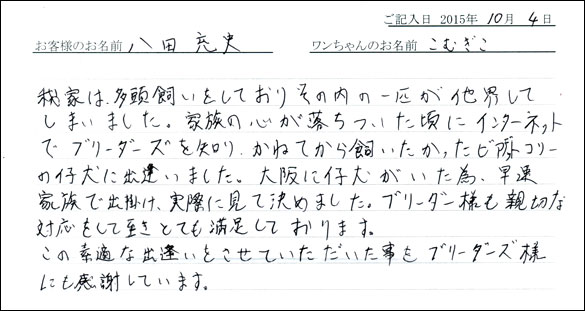 ご記入日 2015年 10月 4日
お客様のお名前 八田 充史 ワンちゃんのお名前 こむぎこ
我家は、多頭飼いをしておりその内の一匹が他界して
しまいました。家族の心が落ちついた頃にインターネット
でブリーダーズを知り、かねてから飼いたかったビアデッドコリー
の仔犬に出逢いました。大阪に仔犬がいた為、早速
家族で出掛け、実際に見て決めました。ブリーダー様も親切な
対応をして頂きとても満足しております。
この素適な出逢いをさせていただいた事をブリーダーズ様
にも感謝しています。